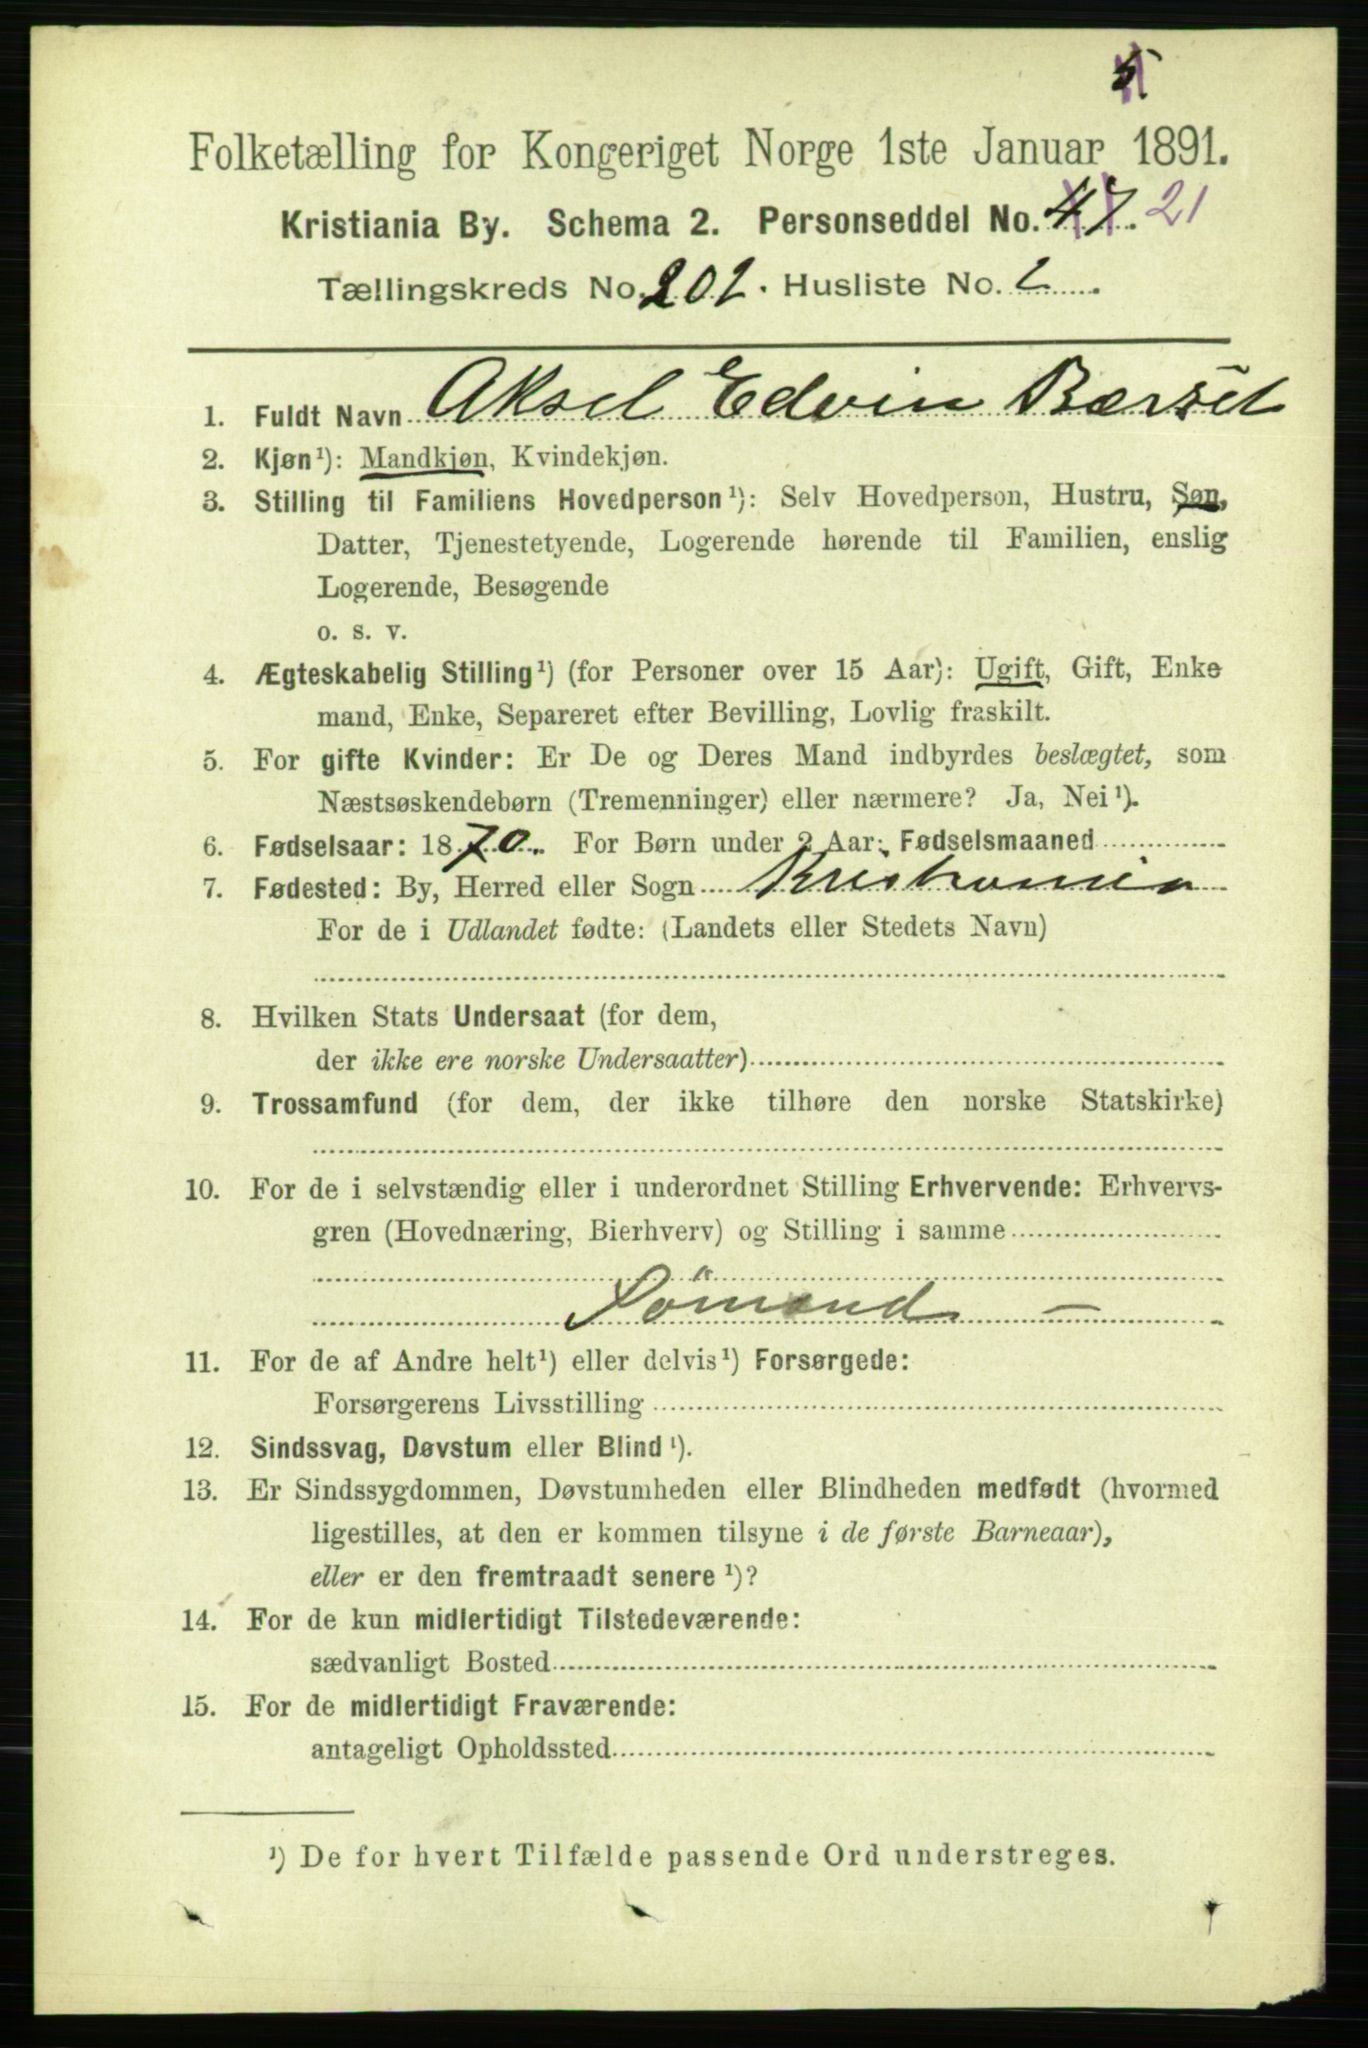 5
Folketælling for Kongeriget Norge 1ste Januar 1891.
Kristiania By. Schema 2. Personseddel No. 47. 21
Tællingskreds No. 202. Husliste No. 2
1. Fuldt Navn Aksel Edvin
2. Kjøn¹): Mandkjøn, Kvindekjøn.
3. Stilling til Familiens Hovedperson¹): Selv Hovedperson, Hustru, Søn,
Datter, Tjenestetyende, Logerende hørende til Familien, enslig
Logerende, Besøgende
o. s. v.
4. Ægteskabelig Stilling¹) (for Personer over 15 Aar): Ugift, Gift, Enke
mand, Enke, Separeret efter Bevilling, Lovlig fraskilt.
5. For gifte Kvinder: Er De og Deres Mand indbyrdes beslægtet, som
Næstsøskendebørn (Tremenninger) eller nærmere? Ja, Nei¹).
6. Fødselsaar: 1870. For Børn under 2 Aar: Fødselsmaaned
7. Fødested: By, Herred eller Sogn Kristiania
For de i Udlandet fødte: (Landets eller Stedets Navn)
8. Hvilken Stats Undersaat (for dem,
der ikke ere norske Undersaatter)
9. Trossamfund (for dem, der ikke tilhøre den norske Statskirke)
10. For de i selvstændig eller i underordnet Stilling Erhvervende: Erhvervs-
gren (Hovednæring, Bierhverv) og Stilling i samme
Sömand —
11. For de af Andre helt¹) eller delvis¹) Forsørgede:
Forsørgerens Livsstilling
12. Sindssvag, Døvstum eller Blind¹).
13. Er Sindssygdommen, Døvstumheden eller Blindheden medfødt (hvormed
ligestilles, at den er kommen tilsyne i de første Barneaar),
eller er den fremtraadt senere¹)?
14. For de kun midlertidigt Tilstedeværende:
sædvanligt Bosted
15. For de midlertidigt Fraværende:
antageligt Opholdssted
¹) De for hvert Tilfælde passende Ord understreges.